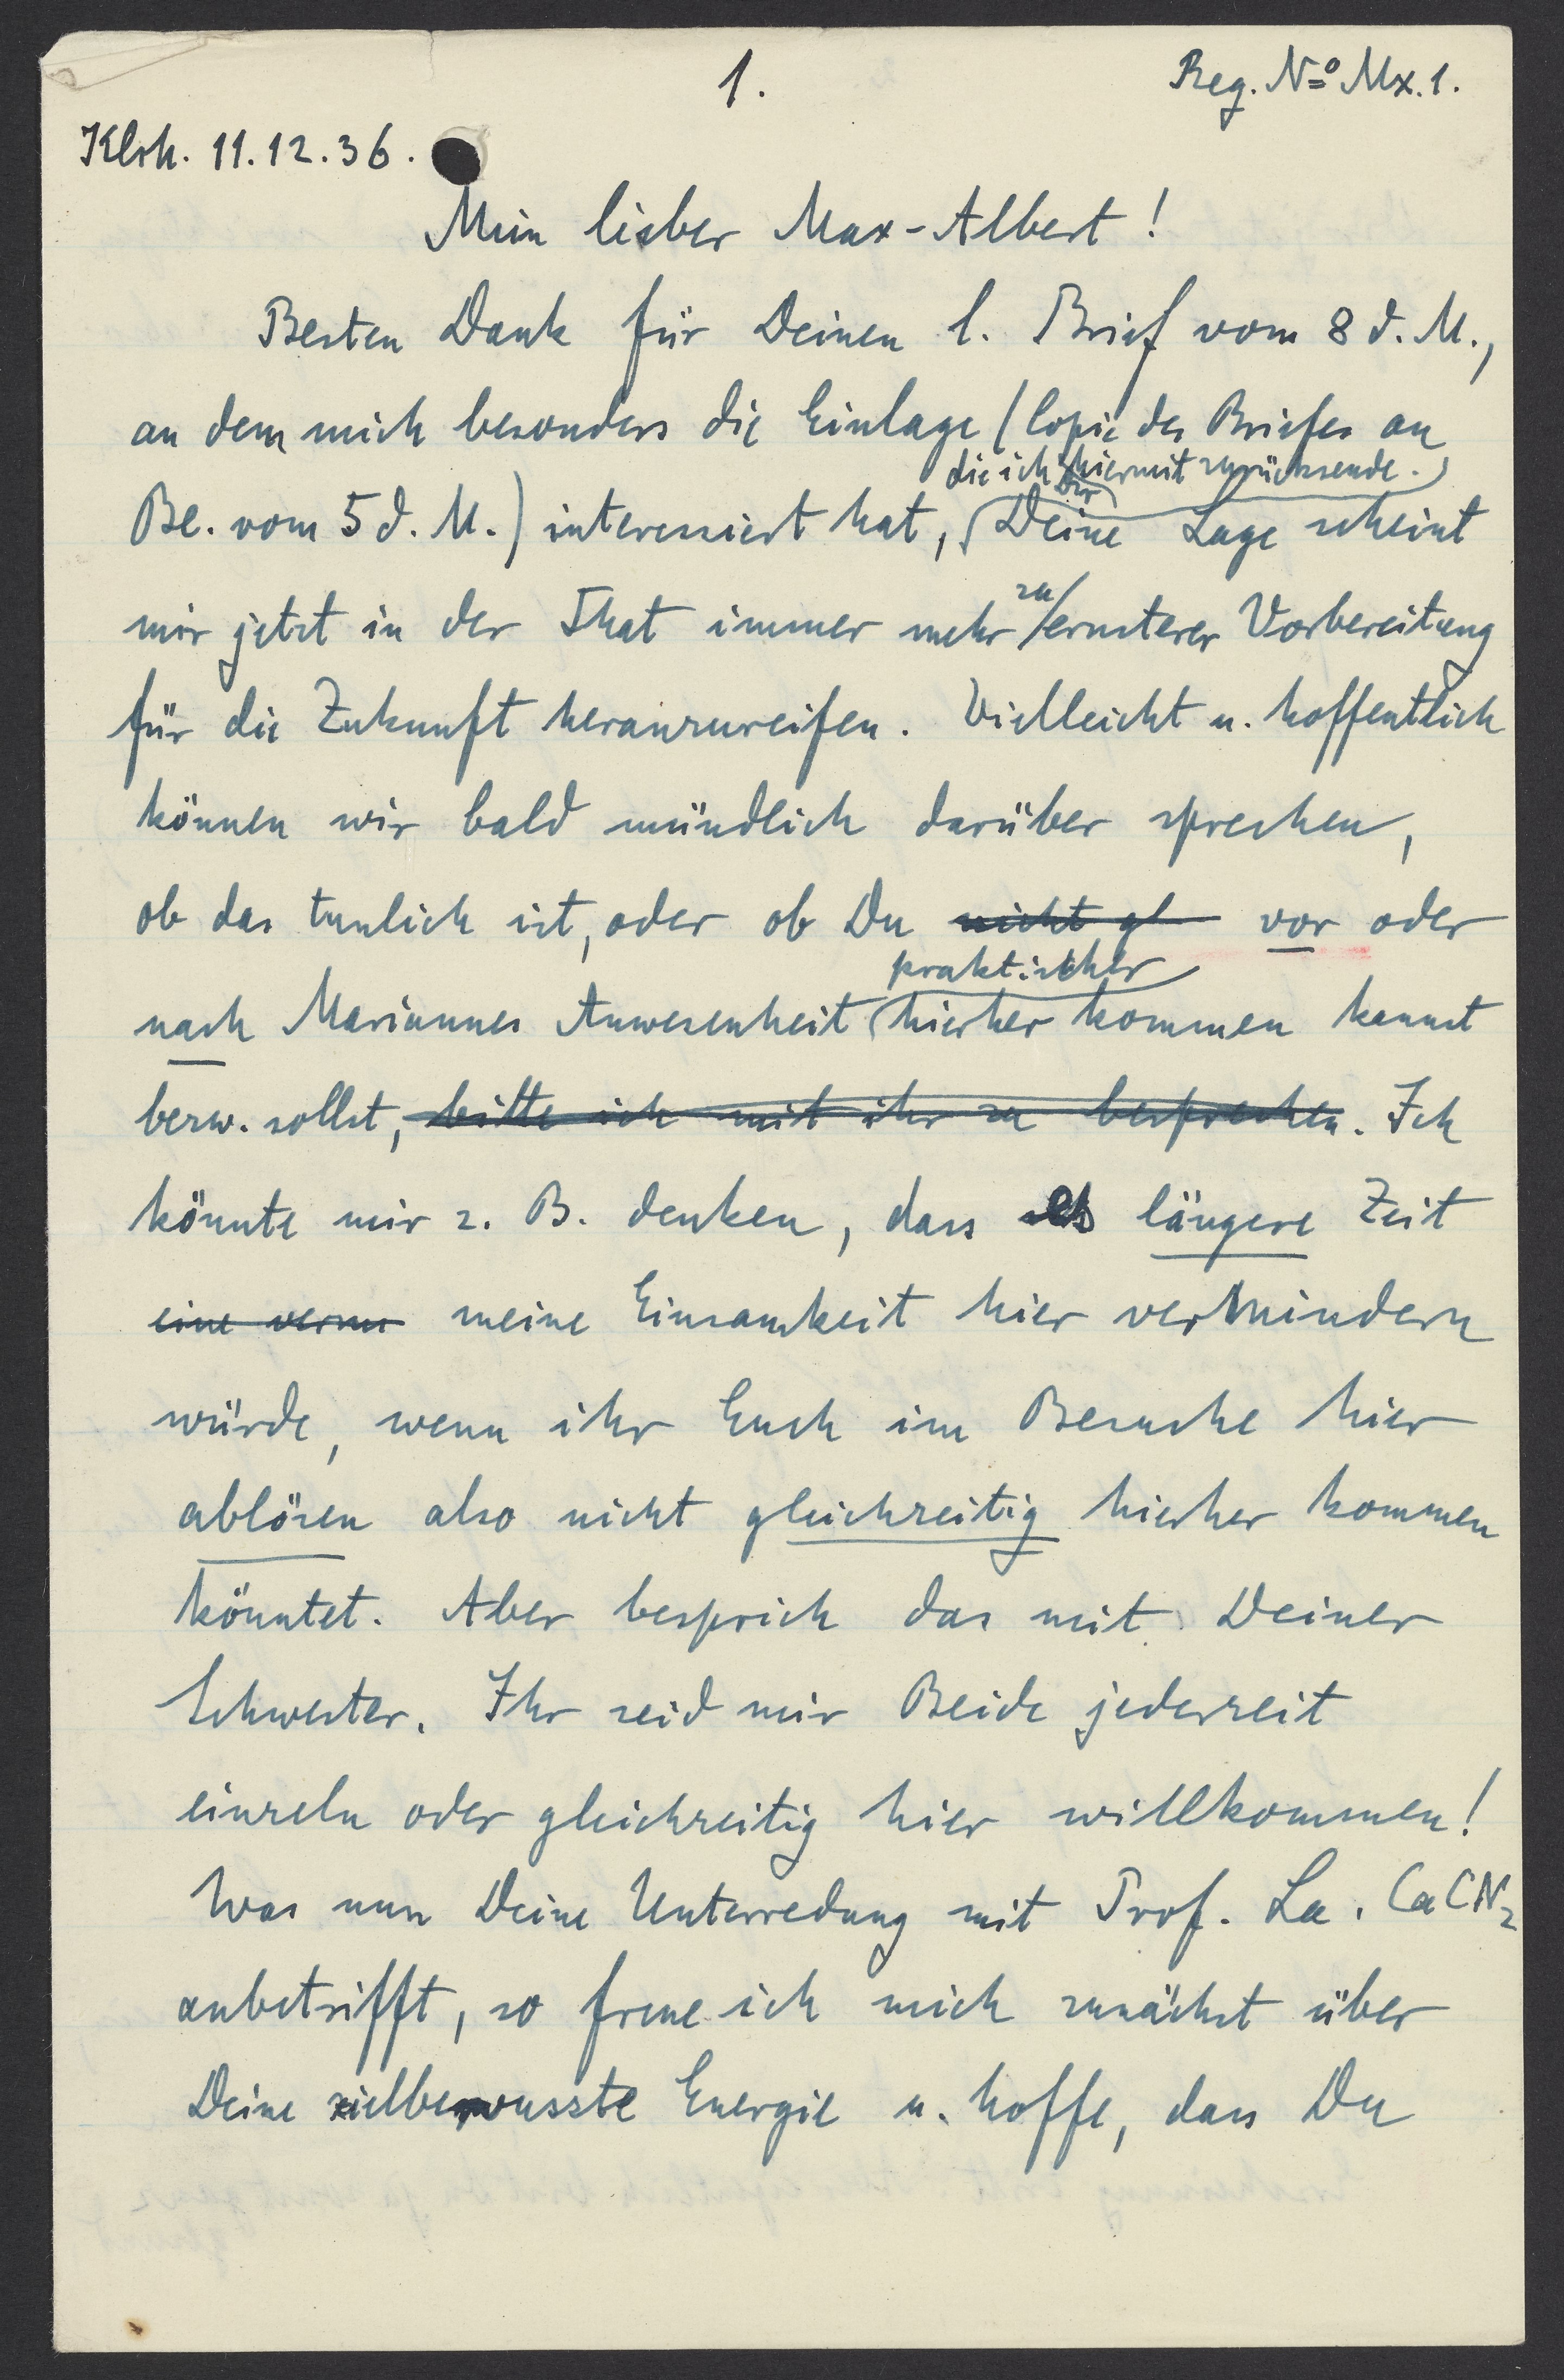 1.
Reg. No Mx. 1.
Klsh. 11.12.36.
Mein lieber Max-Albert!
Besten Dank für Deinen l. Brief vom 8 d. M.,
an dem mich besonders die Einlage (Copie des Briefes an
die ich Dir hiermit zurücksende.)
Be. vom 5 d. M.) interessiert hat, Deine Lage scheint
mir jetzt in der That immer mehr zu ernsterer Vorbereitung
für die Zukunft heranzureifen. Vielleicht u. hoffentlich
können wir bald mündlich darüber sprechen,
ob das tunlich ist, oder ob Du nicht gl vor oder
praktischer
nach Mariannes Anwesenheit hierher kommen kannst
bezw. sollst, bitte ich mit ihr zu besprechen. Ich
könnte mir z. B. denken, dass es längere Zeit
eine vermi meine Einsamkeit hier vermindern
würde, wenn ihr Euch im Besuche hier
ablösen also nicht gleichzeitig hierher kommen
könntet. Aber besprich das mit Deiner
Schwester. Ihr seid mir Beide jederzeit
einzeln oder gleichzeitig hier willkommen!
Was nun Deine Unterredung mit Prof. La. CaCN2
anbetrifft, so freue ich mich zunächst über
Deine zielbewusste Energie u. hoffe, dass Du